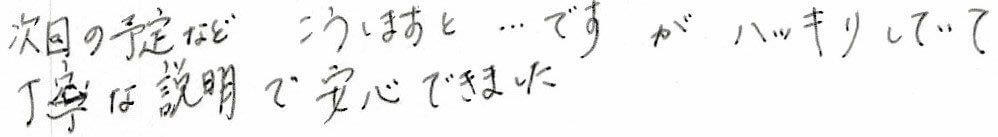 次回の予定など こうしますと …ですが ハッキリしていて
丁寧な説明で安心できました